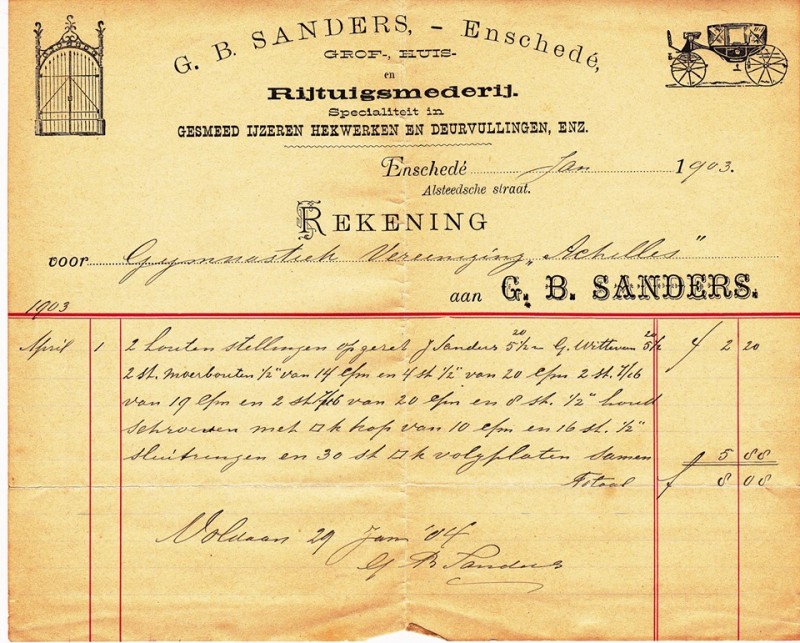 G. B. SANDERS, – Enschedé,
GROF-, HUIS-
en
Rijtuigsmederij.
Specialiteit in
GESMEED IJZEREN HEKWERKEN EN DEURVULLINGEN, ENZ.
Enschedé Jan 1903.
Alsteedsche straat.
REKENING
voor Gymnastiek Vereeniging „Achilles"
aan G. B. SANDERS.
1903
April 1 2 houten stellingen opgezet J Sanders 20 5½ G. Witteveen 20 5½ f 2 20
2 st. moerbouten ½" van 14 c/m en 4 st ½" van 20 c/m 2 st. 7/16
van 19 c/m en 2 st 7/16 van 20 c/m en 8 st. ½" houd
schroeven met □k kop van 10 c/m en 16 st. ½"
sluitringen en 30 st □k volgplaten samen f 5 88
Totaal f 8 08
Voldaan 29 Jan '04
G B Sanders